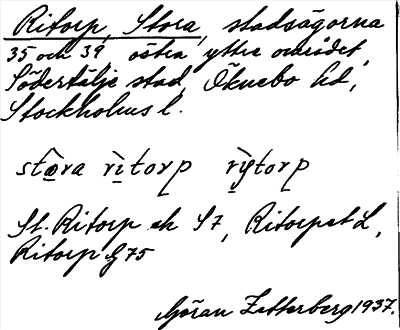 Ritorp, Stora, stadsägorna
35 och 39 östra yttre området,
Södertälje stad, Öknebo hd,
Stockholms l.
stọ̀ra rị̀torp rỵ̀torp
St. Ritorp ek S7, Ritorpet L,
Ritorp G75
Göran Zetterberg 1937.